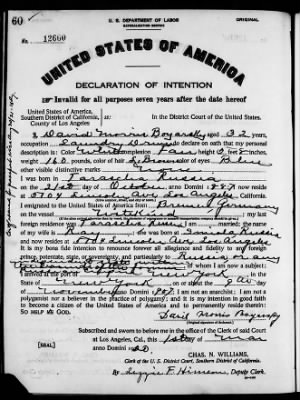 60
U. S. DEPARTMENT OF LABOR
NATURALIZATION SERVICE
ORIGINAL
No. 12660
UNITED STATES OF AMERICA
DECLARATION OF INTENTION
Invalid for all purposes seven years after the date hereof
United States of America,
Southern District of California,
County of Los Angeles
ss:
In the District Court of the United States.
I, David Morris Bogarsky aged 32 years,
occupation Laundry Driver do declare on oath that my personal
description is: Color White, complexion Fair, height 5 feet 8 inches,
weight 160 pounds, color of hair Brown, color of eyes Blue
other visible distinctive marks
I was born in Russia
on the 21st day of October, anno Domini 1887; I now reside
at Lincoln Ave, Los Angeles, California
I emigrated to the United States of America from Bremen Germany
on the vessel Wittekind; my last
foreign residence was Russia; I am married; the name of my
wife is she was born at Russia
and now resides at Lincoln Ave Los Angeles
It is my bona fide intention to renounce forever all allegiance and fidelity to any foreign
prince, potentate, state, or sovereignty, and particularly to Russia or any
of whom I am now a subject;
I arrived at the port of New York, in the
State of New York, on or about the 8th day
of November, anno Domini 1907; I am not an anarchist; I am not a
polygamist nor a believer in the practice of polygamy; and it is my intention in good faith
to become a citizen of the United States of America and to permanently reside therein:
SO HELP ME GOD.
David Morris Bogarsky
(Original signature of declarant.)
Subscribed and sworn to before me in the office of the Clerk of said Court
at Los Angeles, Cal., this 1st day of Mar
anno Domini 1920
[SEAL]
CHAS. N. WILLIAMS,
Clerk of the U. S. District Court, Southern District of California.
By F. , Deputy Clerk.